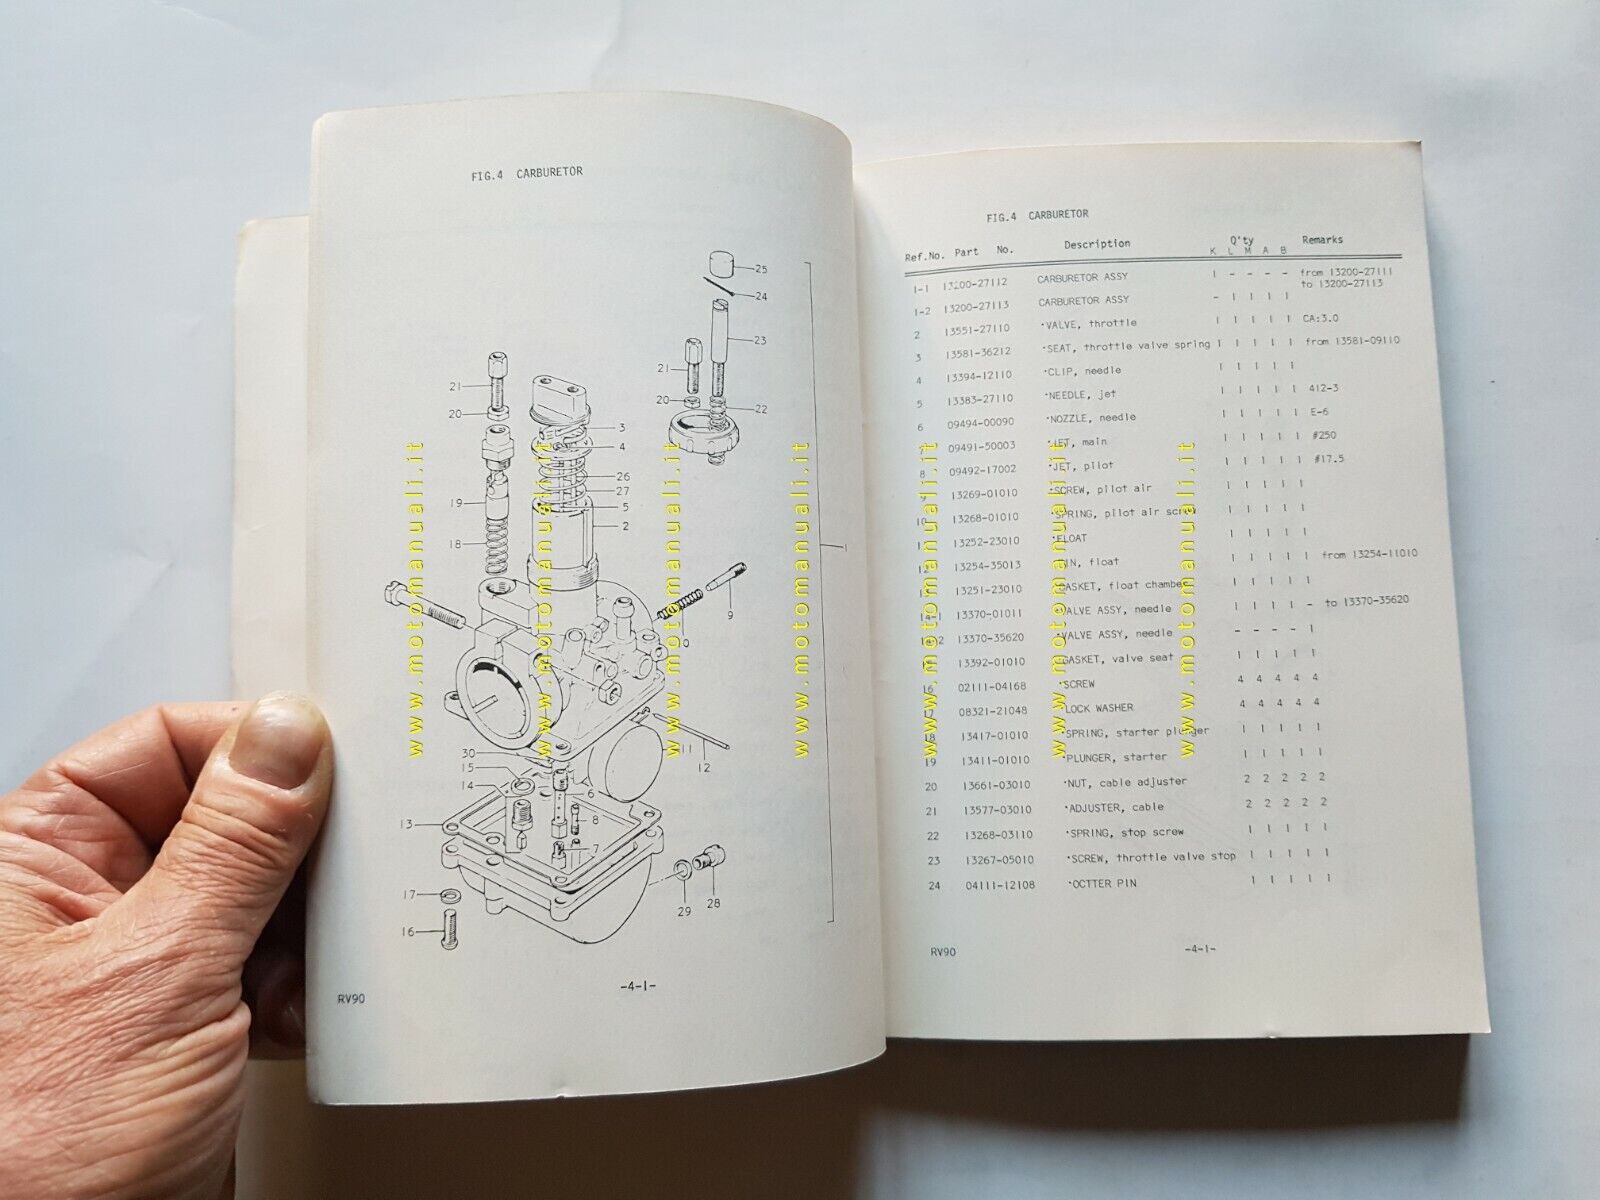 FIG.4 CARBURETOR
25
24
23
22
21
20
21
20
3
4
26
27
5
2
19
18
1
9
10
11
12
30
15
14
6
8
7
13
17
16
29
28
-4-1-
RV90
FIG.4 CARBURETOR
Ref.No. Part No. Description Q'ty Remarks
K L M A B
1-1 13200-27112 CARBURETOR ASSY 1 - - - - from 13200-27111
to 13200-27113
1-2 13200-27113 CARBURETOR ASSY - 1 1 1 1
2 13551-27110 ·VALVE, throttle 1 1 1 1 1 CA:3.0
3 13581-36212 ·SEAT, throttle valve spring 1 1 1 1 1 from 13581-09110
4 13394-12110 ·CLIP, needle 1 1 1 1 1
5 13383-27110 ·NEEDLE, jet 1 1 1 1 1 412-3
6 09494-00090 ·NOZZLE, needle 1 1 1 1 1 E-6
7 09491-50003 ·JET, main 1 1 1 1 1 #250
8 09492-17002 ·JET, pilot 1 1 1 1 1 #17.5
9 13269-01010 ·SCREW, pilot air 1 1 1 1
10 13268-01010 ·SPRING, pilot air screw 1 1 1 1
13252-23010 ·FLOAT 1 1 1 1
12 13254-35013 PIN, float 1 1 1 1 from 13254-11010
13251-23010 GASKET, float chamber 1 1 1 1 1
14-1 13370-01011 VALVE ASSY, needle 1 1 1 1 - to 13370-35620
14-2 13370-35620 ·VALVE ASSY, needle - - - - 1
13392-01010 GASKET, valve seat 1 1 1 1 1
16 02111-04168 ·SCREW 4 4 4 4 4
17 08321-21048 LOCK WASHER 4 4 4 4 4
18 13417-01010 ·SPRING, starter plunger 1 1 1 1 1
19 13411-01010 ·PLUNGER, starter 1 1 1 1 1
20 13661-03010 ·NUT, cable adjuster 2 2 2 2 2
21 13577-03010 ·ADJUSTER, cable 2 2 2 2 2
22 13268-03110 ·SPRING, stop screw 1 1 1 1 1
23 13267-05010 ·SCREW, throttle valve stop 1 1 1 1 1
24 04111-12108 ·OCTTER PIN 1 1 1 1 1
RV90
-4-1-
www.motomanuali.it
www.motomanuali.it
www.motomanuali.it
www.motomanuali.it
www.motomanuali.it
www.motomanuali.it
www.motomanuali.it